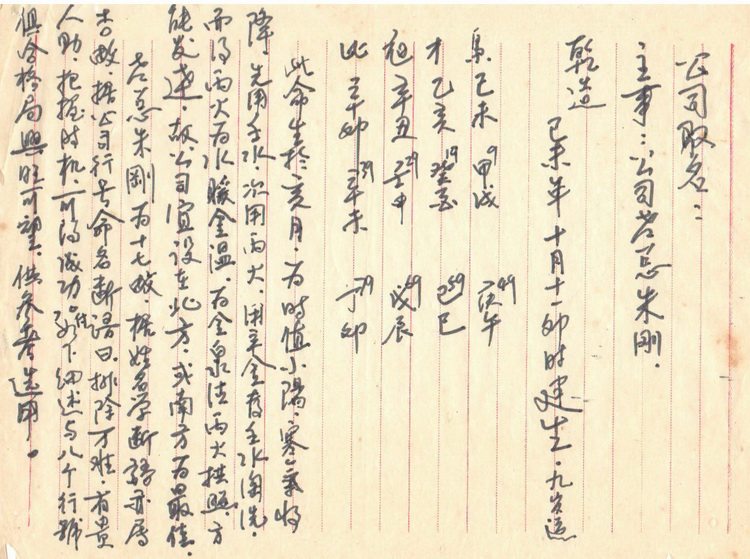 公司取名：
主事：：公司老总朱刚.
乾造　己未年十月十一卯时建生．九岁运
枭己未　甲戌9　庚午49
才乙亥　癸酉19　己巳59
枭辛丑　壬申29　戊辰69
比辛卯　辛未39　丁卯79
此命生於亥月．为时值小陽．寒氣收
降．先用壬水．次用丙火．闲辛金喜壬水淘洗．
而得丙火为水暖金温．为金泉法丙火拱照．方
能发達．故公司宜设在北方．或南方为最佳．
老总朱剛为十七畝．据姓名学断語亦属
吉畝．据公司行号命名断語曰．排除万难．有貴
人助．把握时机．可得成功．列下细述与八个行號
俱合格局興旺可望．供参考选用。